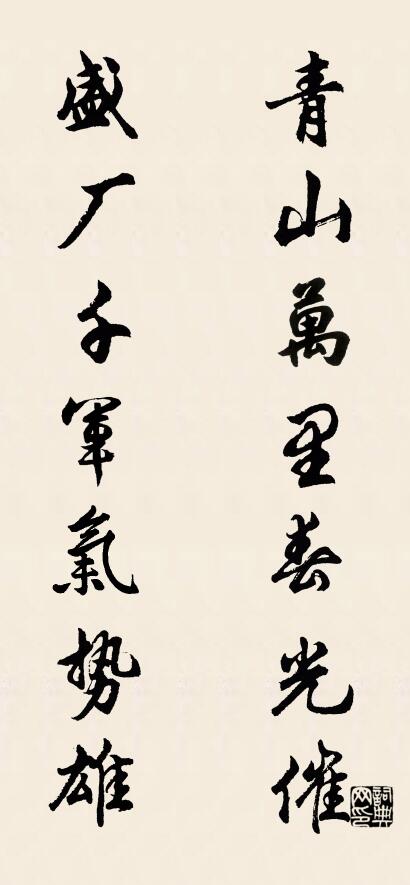 青山萬里春光催
盛厂千軍氣勢雄
詞典
网印